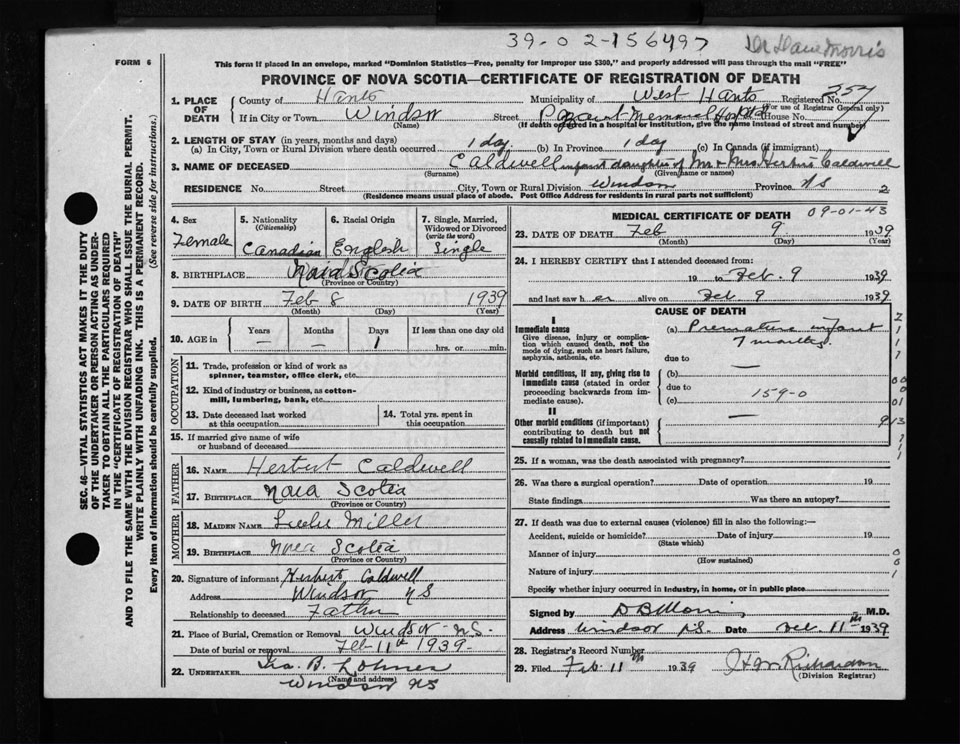 39-02-156497 Dr Dave Morris
FORM 6
This form if placed in an envelope, marked "Dominion Statistics—Free, penalty for improper use $300," and properly addressed will pass through the mail "FREE"
PROVINCE OF NOVA SCOTIA—CERTIFICATE OF REGISTRATION OF DEATH
1. PLACE OF DEATH County of Hants Municipality of West Hants Registered No. 357
(For use of Registrar General only)
If in City or Town Windsor Street Payzant Memorial Hospital House No.
(Name) (If death occurred in a hospital or institution, give the name instead of street and number)
2. LENGTH OF STAY (in years, months and days)
(a) In City, Town or Rural Division where death occurred 1 day (b) In Province 1 day (c) In Canada (if immigrant)
3. NAME OF DECEASED Caldwell infant daughter of Mr & Mrs Herbert Caldwell
(Surname) (Given name or names)
RESIDENCE No. Street City, Town or Rural Division Windsor Province NS 2
(Residence means usual place of abode. Post Office Address for residents in rural parts not sufficient)
SEC. 46—VITAL STATISTICS ACT MAKES IT THE DUTY
OF THE UNDERTAKER OR PERSON ACTING AS UNDER-
TAKER TO OBTAIN ALL THE PARTICULARS REQUIRED
IN THE "CERTIFICATE OF REGISTRATION OF DEATH"
AND TO FILE THE SAME WITH THE DIVISION REGISTRAR WHO SHALL ISSUE THE BURIAL PERMIT.
WRITE PLAINLY WITH UNFADING INK. THIS IS A PERMANENT RECORD.
Every item of information should be carefully supplied. (See reverse side for instructions.)
4. Sex Female
5. Nationality (Citizenship) Canadian
6. Racial Origin English
7. Single, Married, Widowed or Divorced (write the word) Single
8. BIRTHPLACE Nova Scotia
(Province or Country)
9. DATE OF BIRTH Feb 8 1939
(Month) (Day) (Year)
10. AGE in Years — Months — Days 1 If less than one day old hrs. or min.
OCCUPATION
11. Trade, profession or kind of work as
spinner, teamster, office clerk, etc.
12. Kind of industry or business, as cotton-
mill, lumbering, bank, etc.
13. Date deceased last worked at this occupation
14. Total yrs. spent in this occupation
15. If married give name of wife
or husband of deceased
FATHER
16. NAME Herbert Caldwell
17. BIRTHPLACE Nova Scotia
(Province or Country)
MOTHER
18. MAIDEN NAME Miller
19. BIRTHPLACE Nova Scotia
(Province or Country)
20. Signature of informant Herbert Caldwell
Address Windsor NS
Relationship to deceased Father
21. Place of Burial, Cremation or Removal Windsor NS.
Date of burial or removal Feb 11th 1939
22. UNDERTAKER Geo. B. Lohnes
(Name and address)
Windsor NS
MEDICAL CERTIFICATE OF DEATH 09-01-43
23. DATE OF DEATH Feb 9 1939
(Month) (Day) (Year)
24. I HEREBY CERTIFY that I attended deceased from:
19 to Feb. 9 1939
and last saw her alive on Feb. 9 1939
CAUSE OF DEATH
I
Immediate cause
Give disease, injury or complication which caused death, not the mode of dying, such as heart failure, asphyxia, asthenia, etc.
(a) Premature infant
7 months.
due to
Morbid conditions, if any, giving rise to immediate cause (stated in order proceeding backwards from immediate cause).
(b) —
due to
(c) 159-0
II
Other morbid conditions (if important) contributing to death but not causally related to immediate cause. —
25. If a woman, was the death associated with pregnancy?
26. Was there a surgical operation? Date of operation 19
State findings Was there an autopsy?
27. If death was due to external causes (violence) fill in also the following:—
Accident, suicide or homicide? Date of injury 19
(State which)
Manner of injury
(How sustained)
Nature of injury
Specify whether injury occurred in industry, in home, or in public place
Signed by D B Morris M.D.
Address Windsor N.S. Date Feb. 11th 1939
28. Registrar's Record Number
29. Filed Feb 11th 1939 Richardson
(Division Registrar)